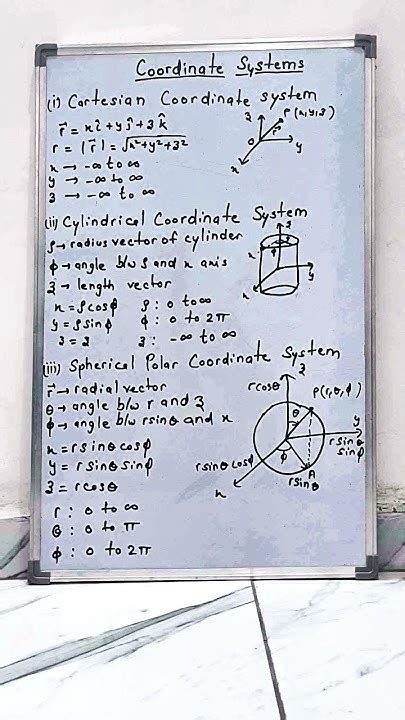 Coordinate Systems
(i) Cartesian Coordinate system
r⃗ = xî + yĵ + zk̂
r = |r⃗| = √x²+y²+z²
x → -∞ to ∞
y → -∞ to ∞
z → -∞ to ∞
z
P(x,y,z)
r⃗
O
y
x
(ii) Cylindrical Coordinate System
ρ → radius vector of cylinder
ϕ → angle b/w ρ and x axis
z → length vector
x = ρcosϕ
ρ : 0 to ∞
y = ρsinϕ
ϕ : 0 to 2π
z = z
z : -∞ to ∞
z
y
x
(iii) Spherical Polar Coordinate System
r⃗ → radial vector
θ → angle b/w r and z
ϕ → angle b/w rsinθ and x
x = rsinθcosϕ
y = rsinθsinϕ
z = rcosθ
r : 0 to ∞
θ : 0 to π
ϕ : 0 to 2π
z
rcosθ
P(r,θ,ϕ)
θ
y
rsinθ
sinϕ
ϕ
rsinθcosϕ
A
rsinθ
x